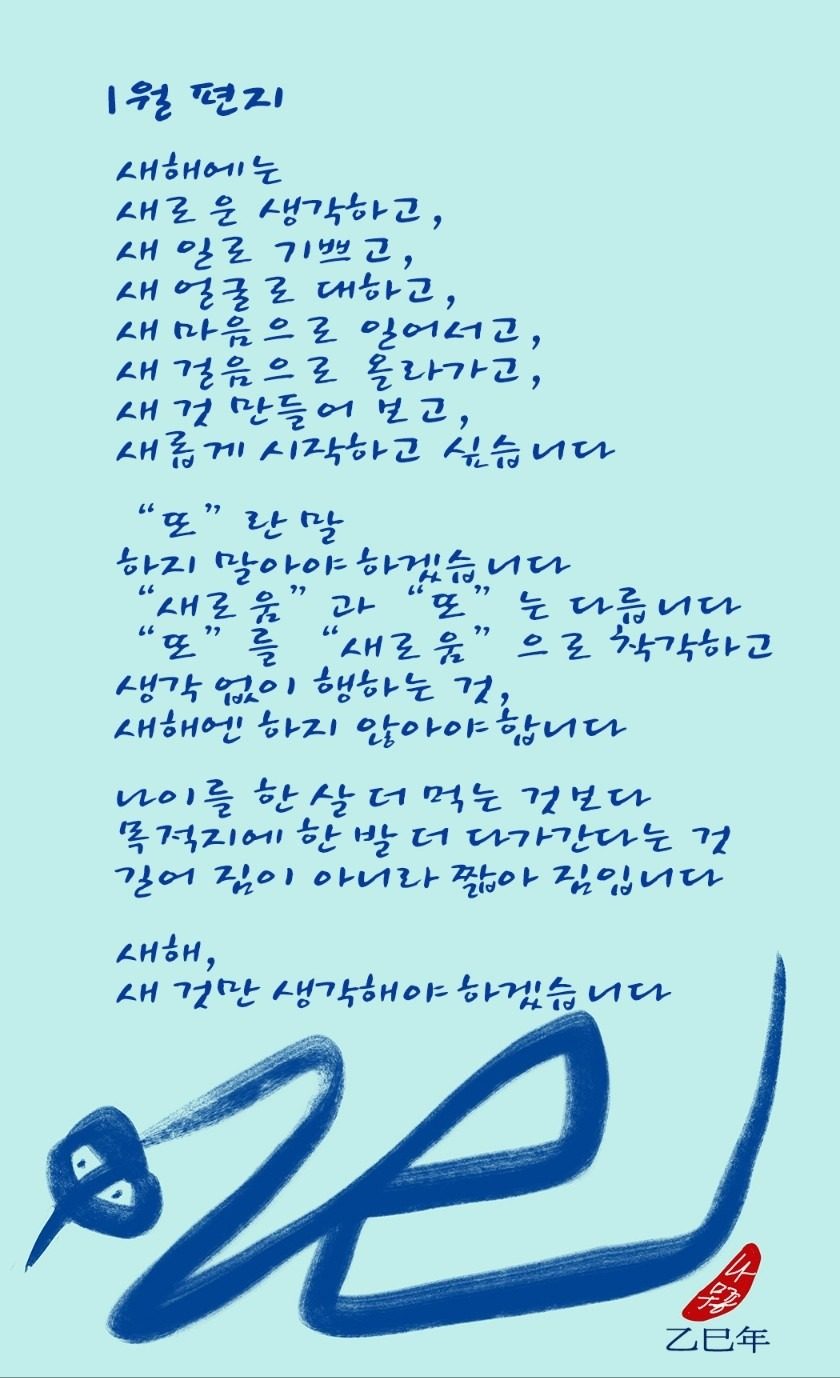 1월 편지
새해에는
새로운 생각하고,
새 일로 기쁘고,
새 얼굴로 대하고,
새 마음으로 일어서고,
새 걸음으로 올라가고,
새 것 만들어 보고,
새롭게 시작하고 싶습니다
“또” 란 말
하지 말아야 하겠습니다
“새로움” 과 “또” 는 다릅니다
“또” 를 “새로움” 으로 착각하고
생각 없이 행하는 것,
새해엔 하지 않아야 합니다
나이를 한 살 더 먹는 것보다
목적지에 한 발 더 다가간다는 것
길어 짐이 아니라 짧아 짐입니다
새해,
새 것만 생각해야 하겠습니다
乙巳年